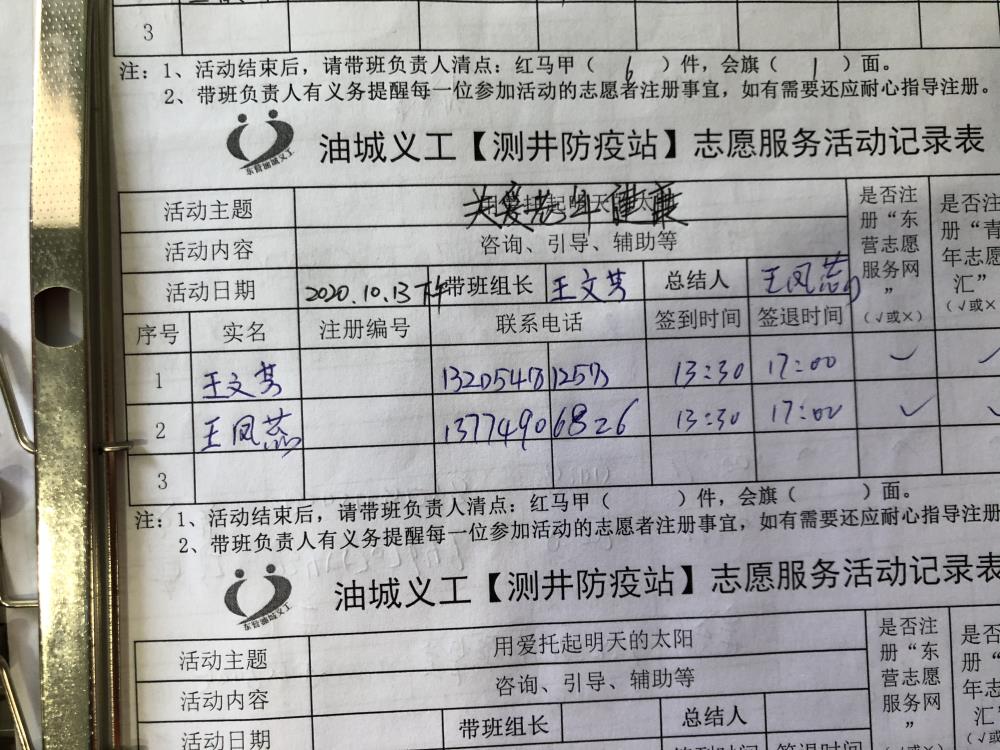 3
注：1、活动结束后，请带班负责人清点：红马甲（ 6 ）件，会旗（ 1 ）面。
2、带班负责人有义务提醒每一位参加活动的志愿者注册事宜，如有需要还应耐心指导注册。
东营油城义工
油城义工【测井防疫站】志愿服务活动记录表
活动主题 用爱托起明天的太阳 关爱老年健康 是否注册“东营志愿服务网”（√或×） 是否注册“青年志愿汇”（√或×
活动内容 咨询、引导、辅助等
活动日期 2020.10.13下午 带班组长 王文芳 总结人 王凤蕊
序号 实名 注册编号 联系电话 签到时间 签退时间
1 王文芳 13:30 17:00 ✓ ✓
2 王凤蕊 13774906826 13:30 17:00 ✓ ✓
3
注：1、活动结束后，请带班负责人清点：红马甲（ ）件，会旗（ ）面。
2、带班负责人有义务提醒每一位参加活动的志愿者注册事宜，如有需要还应耐心指导注册
东营油城义工
油城义工【测井防疫站】志愿服务活动记录表
活动主题 用爱托起明天的太阳 是否注册“东营志愿服务网” 是否注册“青年志愿汇”
活动内容 咨询、引导、辅助等
活动日期 带班组长 总结人
签到时间 签退时间 （√或×） （√或